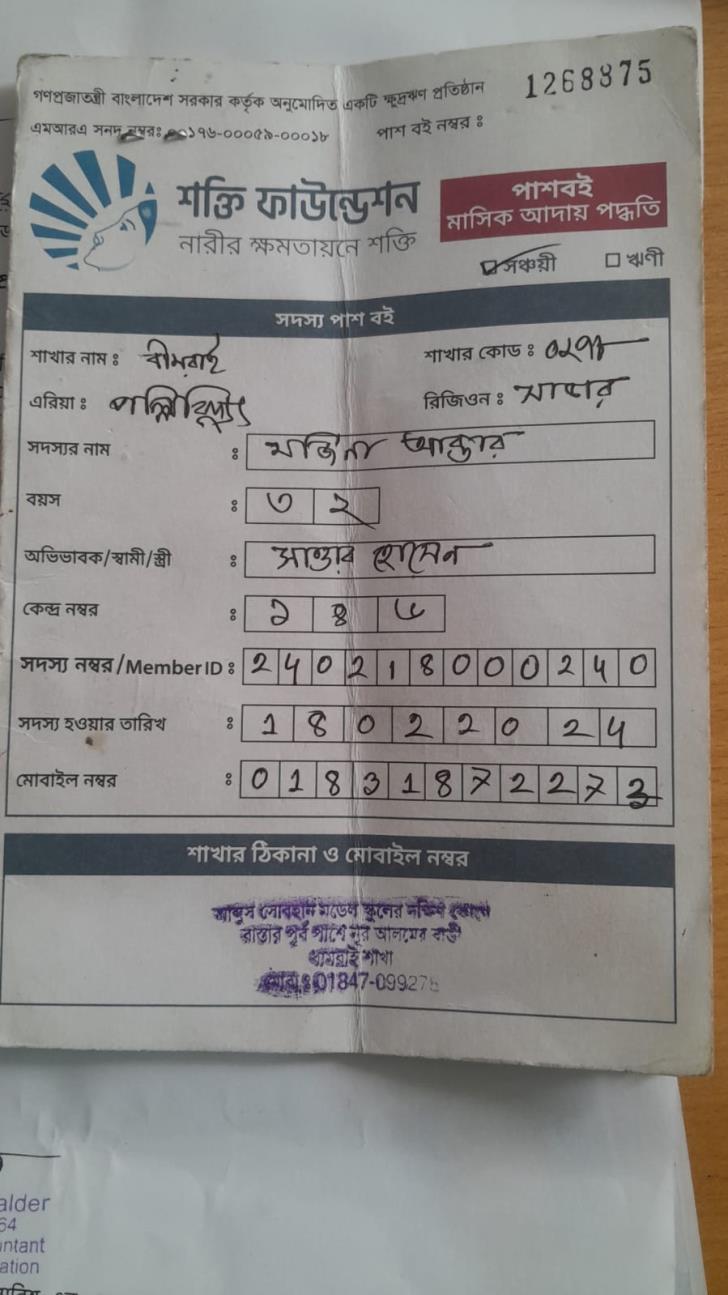 গণপ্রজাতন্ত্রী বাংলাদেশ সরকার কর্তৃক অনুমোদিত একটি ক্ষুদ্রঋণ প্রতিষ্ঠান
1268875
এমআরএ সনদ নম্বরঃ ০০১৭৬-০০০৫৯-০০০১৮
পাশ বই নম্বর ঃ
শক্তি ফাউন্ডেশন
নারীর ক্ষমতায়নে শক্তি
পাশবই
মাসিক আদায় পদ্ধতি
সঞ্চয়ী ঋণী
সদস্য পাশ বই
শাখার নাম ঃ
শাখার কোড ঃ ০২৭৮
এরিয়া ঃ পল্লিবিদ্যুৎ
রিজিওন ঃ সাভার
সদস্যর নাম ঃ মর্জিনা আক্তার
বয়স ঃ ৩২
অভিভাবক/স্বামী/স্ত্রী ঃ হোসেন
কেন্দ্র নম্বর ঃ
সদস্য নম্বর/Member ID ঃ 240218000240
সদস্য হওয়ার তারিখ ঃ 18022024
মোবাইল নম্বর ঃ 01831872273
শাখার ঠিকানা ও মোবাইল নম্বর
মডেল স্কুলের দক্ষিণ
রাস্তার পূর্ব পাশে নূর আলমের বাড়ী
ধামরাই শাখা
01847-09927
alder
64
ntant
ation